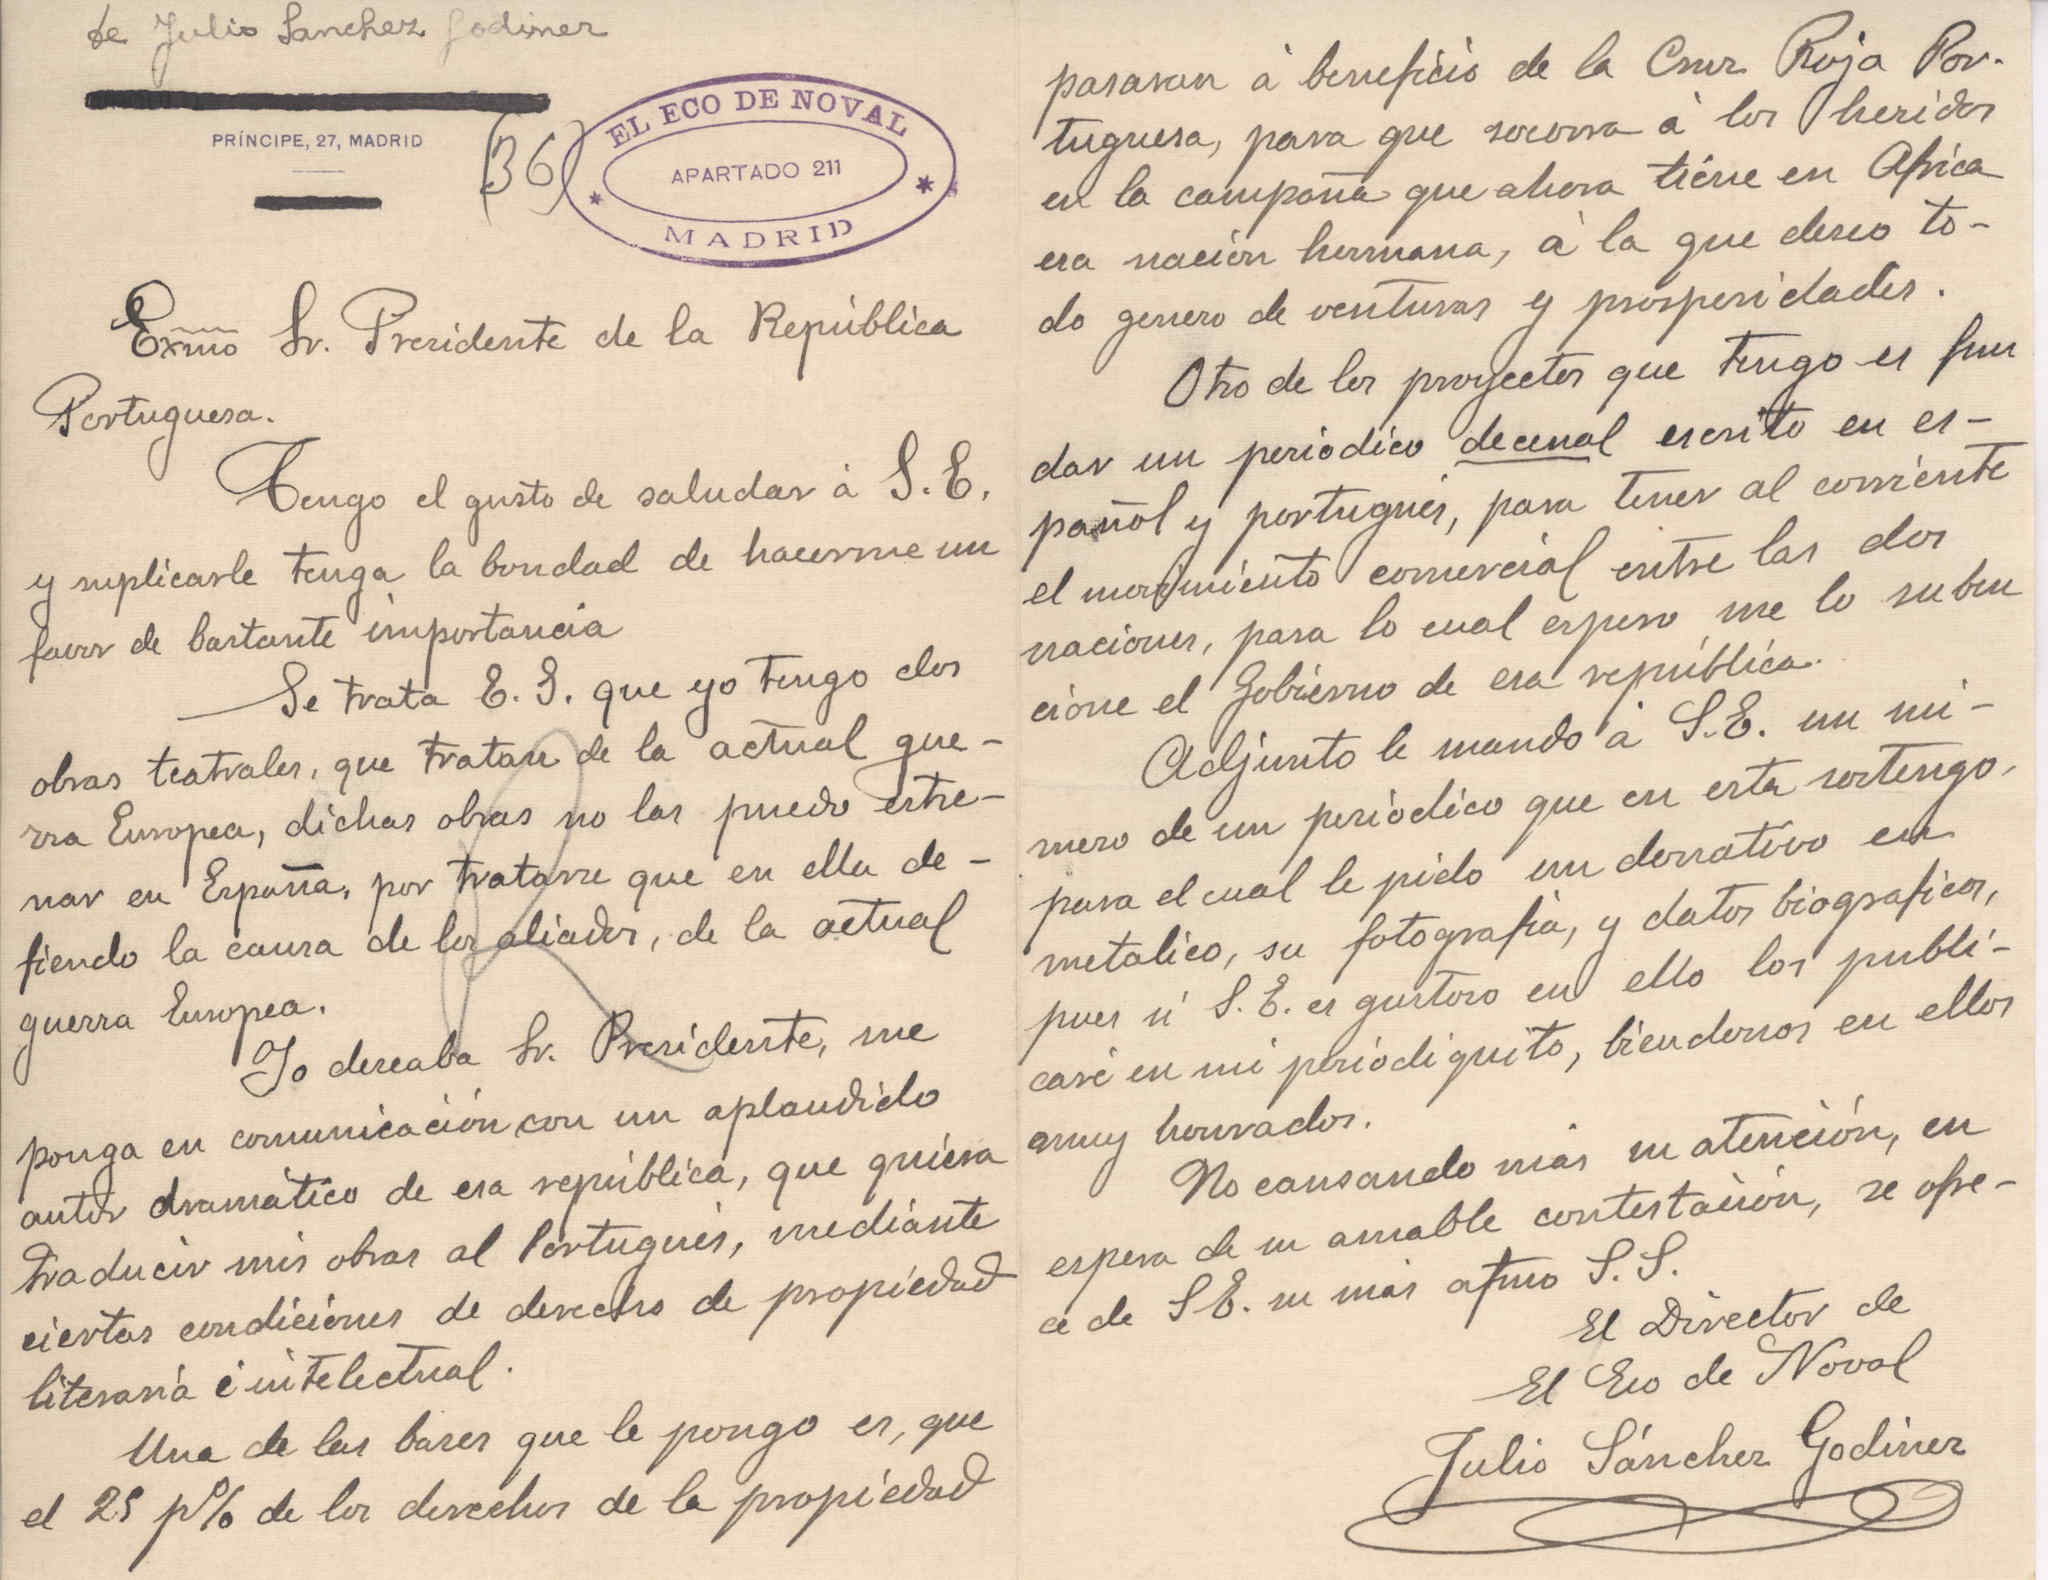 de Julio Sanchez Godinez
PRÍNCIPE, 27, MADRID
(36)
EL ECO DE NOVAL
APARTADO 211
MADRID
Exmo Sr. Presidente de la República
Portuguesa.
Tengo el gusto de saludar á S. E.
y suplicarle tenga la bondad de hacerme un
favor de bastante importancia
Se trata E. S. que yo tengo dos
obras teatrales, que tratan de la actual gue-
rra Europea, dichas obras no las puedo estre-
nar en España, por tratarse que en ellas de-
fiendo la causa de los aliados, de la actual
guerra Europea.
Yo deseaba Sr. Presidente, me
ponga en comunicación con un aplaudido
autor dramático de esa república, que quiera
traducir mis obras al Portugués, mediante
ciertas condiciones de derecho de propiedad
literaria é intelectual.
Una de las bases que le pongo es, que
el 25 p% de los derechos de la propiedad
pasaran á beneficio de la Cruz Roja Por-
tuguesa, para que socorra á los heridos
en la campaña que ahora tiene en Africa
esa nación hermana, á la que deseo to-
do genero de venturas y prosperidades.
Otro de los proyectos que tengo es fun
dar un periódico decenal escrito en es-
pañol y portugués, para tener al corriente
el movimiento comercial entre las dos
naciones, para lo cual espero me lo suben
cione el Gobierno de esa república.
Adjunto le mando á S. E. un nú-
mero de un periódico que en esta sostengo,
para el cual le pido un donativo en
metalico, su fotografia, y datos biograficos,
pues si S. E. es gustoso en ello los publi-
caré en mi periodiquito, biendonos en ellos
muy honrados.
No cansando más su atención, en
espera de su amable contestación, se ofre-
ce de S E. su más afmo S. S.
El Director de
El Eco de Noval
Julio Sánchez Godinez